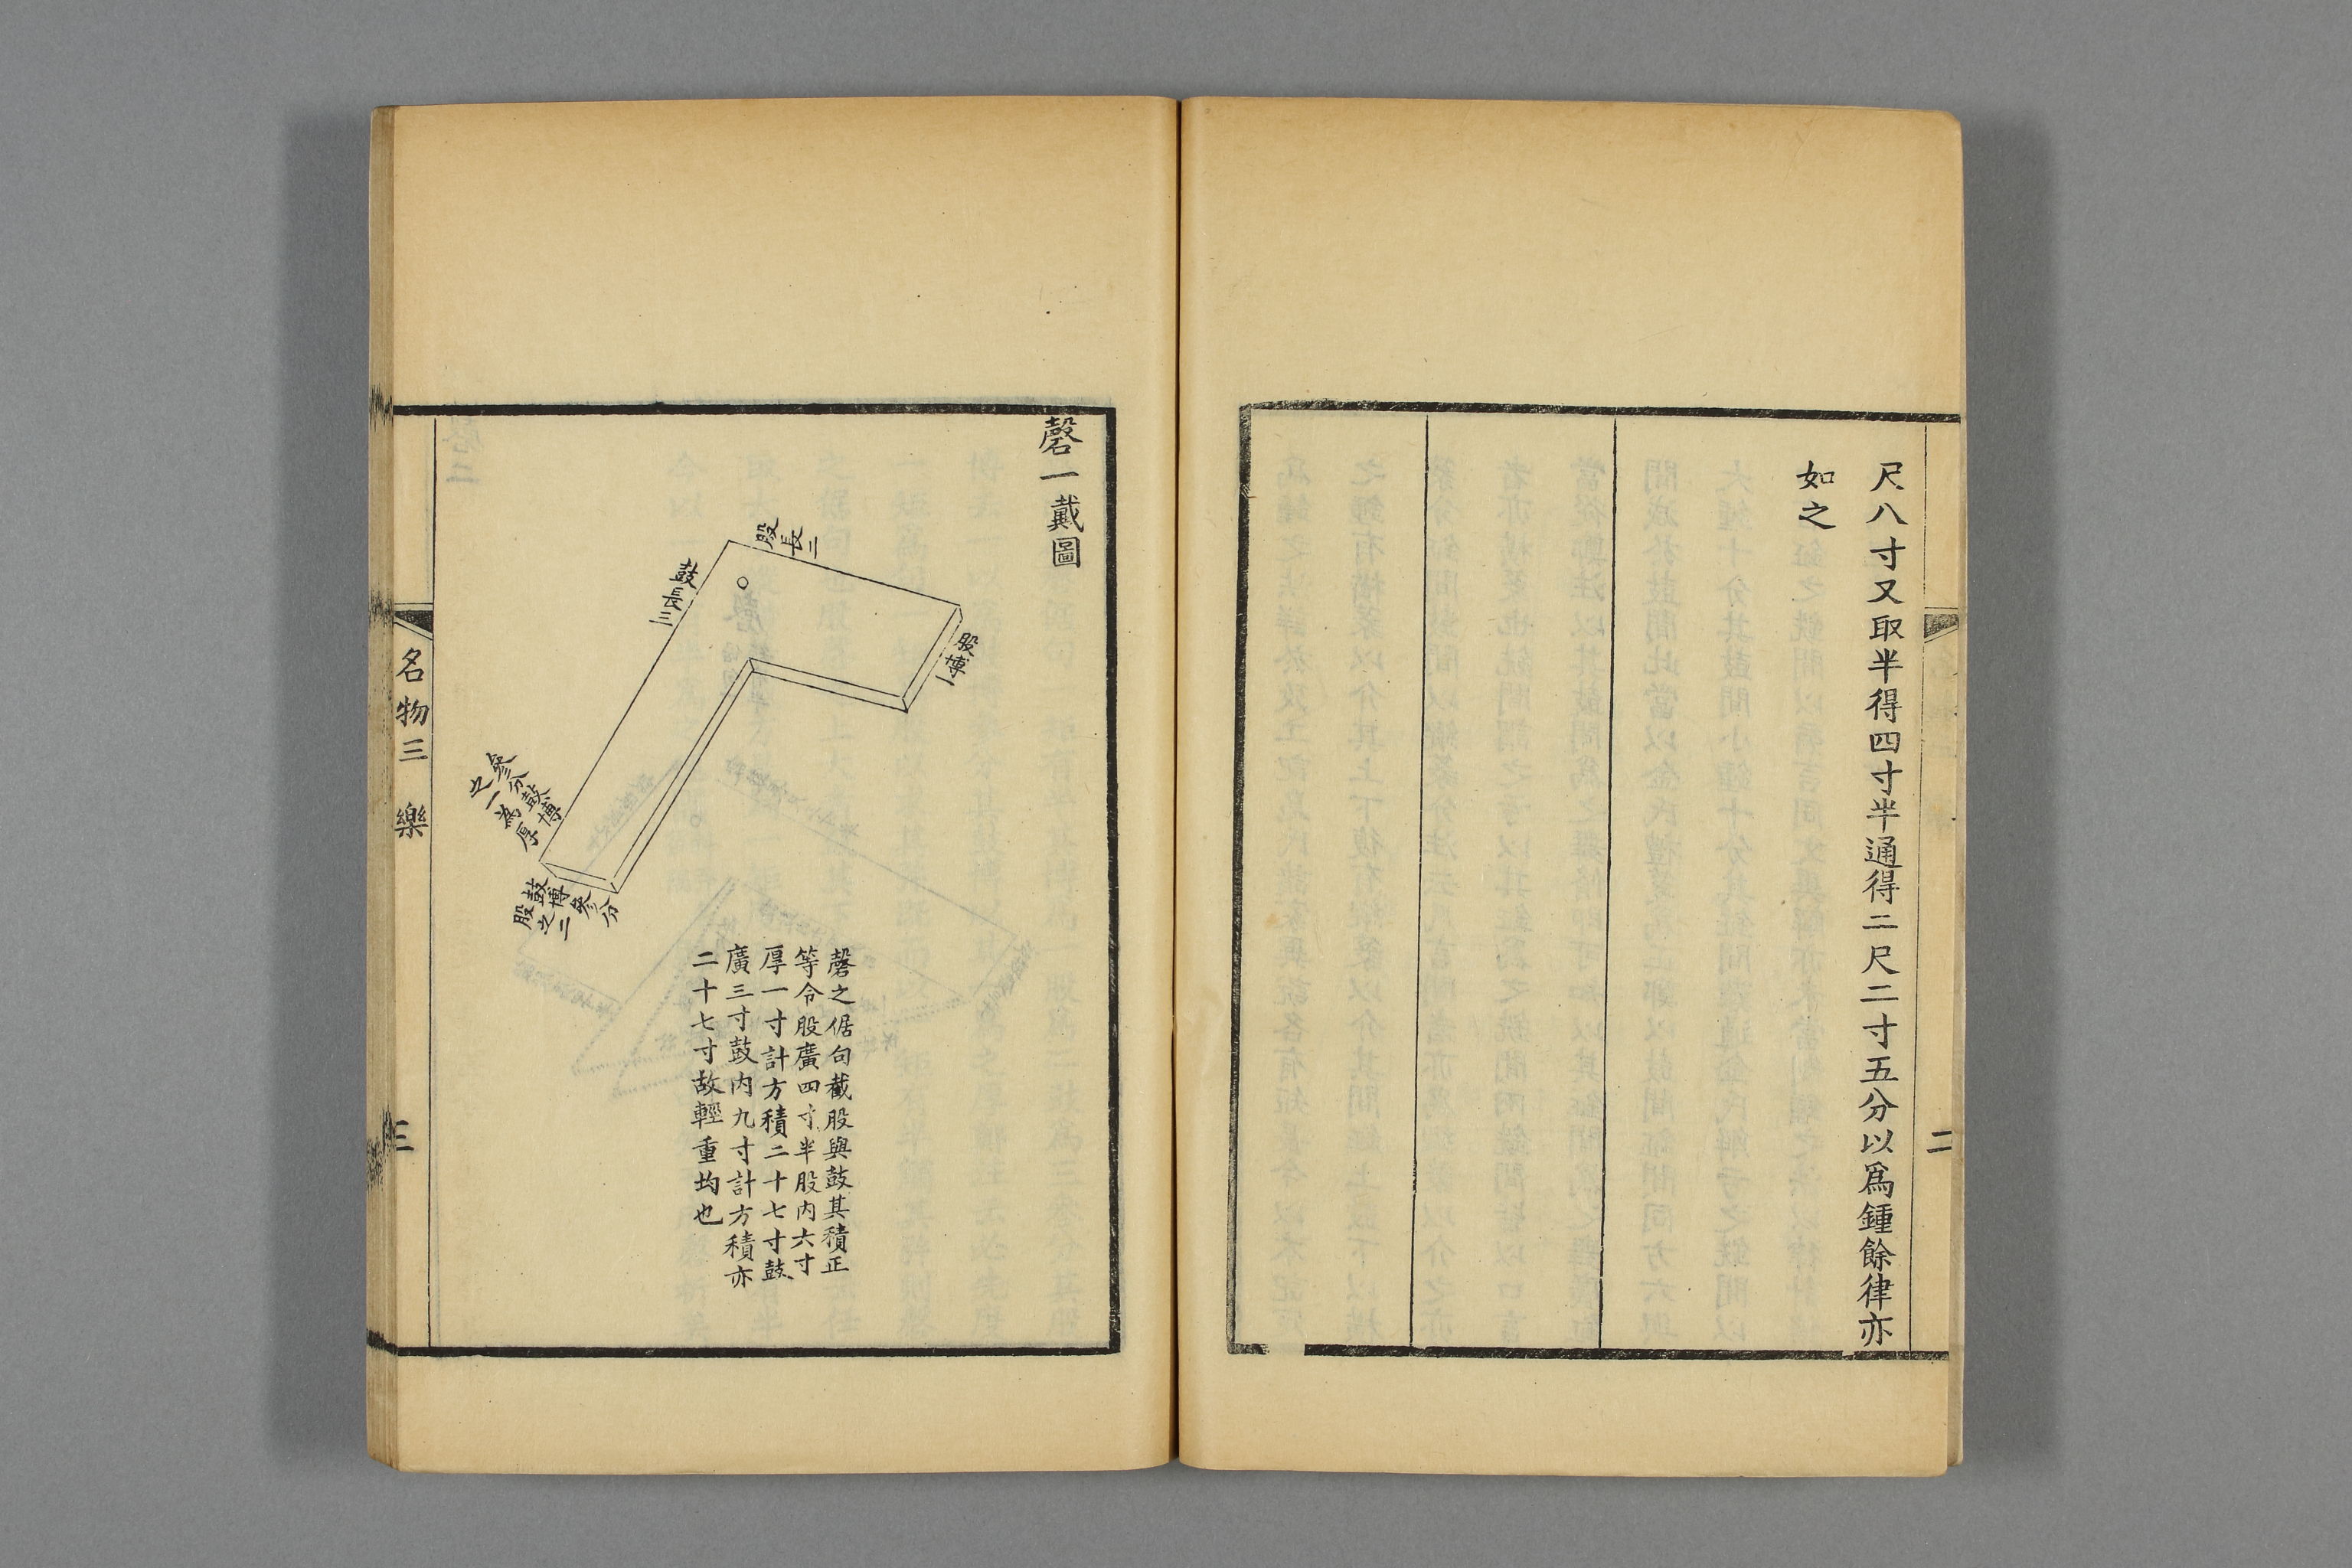 尺八寸又取半得四寸半通得二尺二寸五分以爲鍾餘律亦
如之
二
磬一戴圖
股長二
鼓長三
股博一
參分鼓博
之一為厚
鼓博參分
股之二
磬之倨句截股與鼓其積正
等令股廣四寸半股内六寸
厚一寸計方積二十七寸鼓
廣三寸鼓内九寸計方積亦
二十七寸故輕重均也
名物三 樂
三